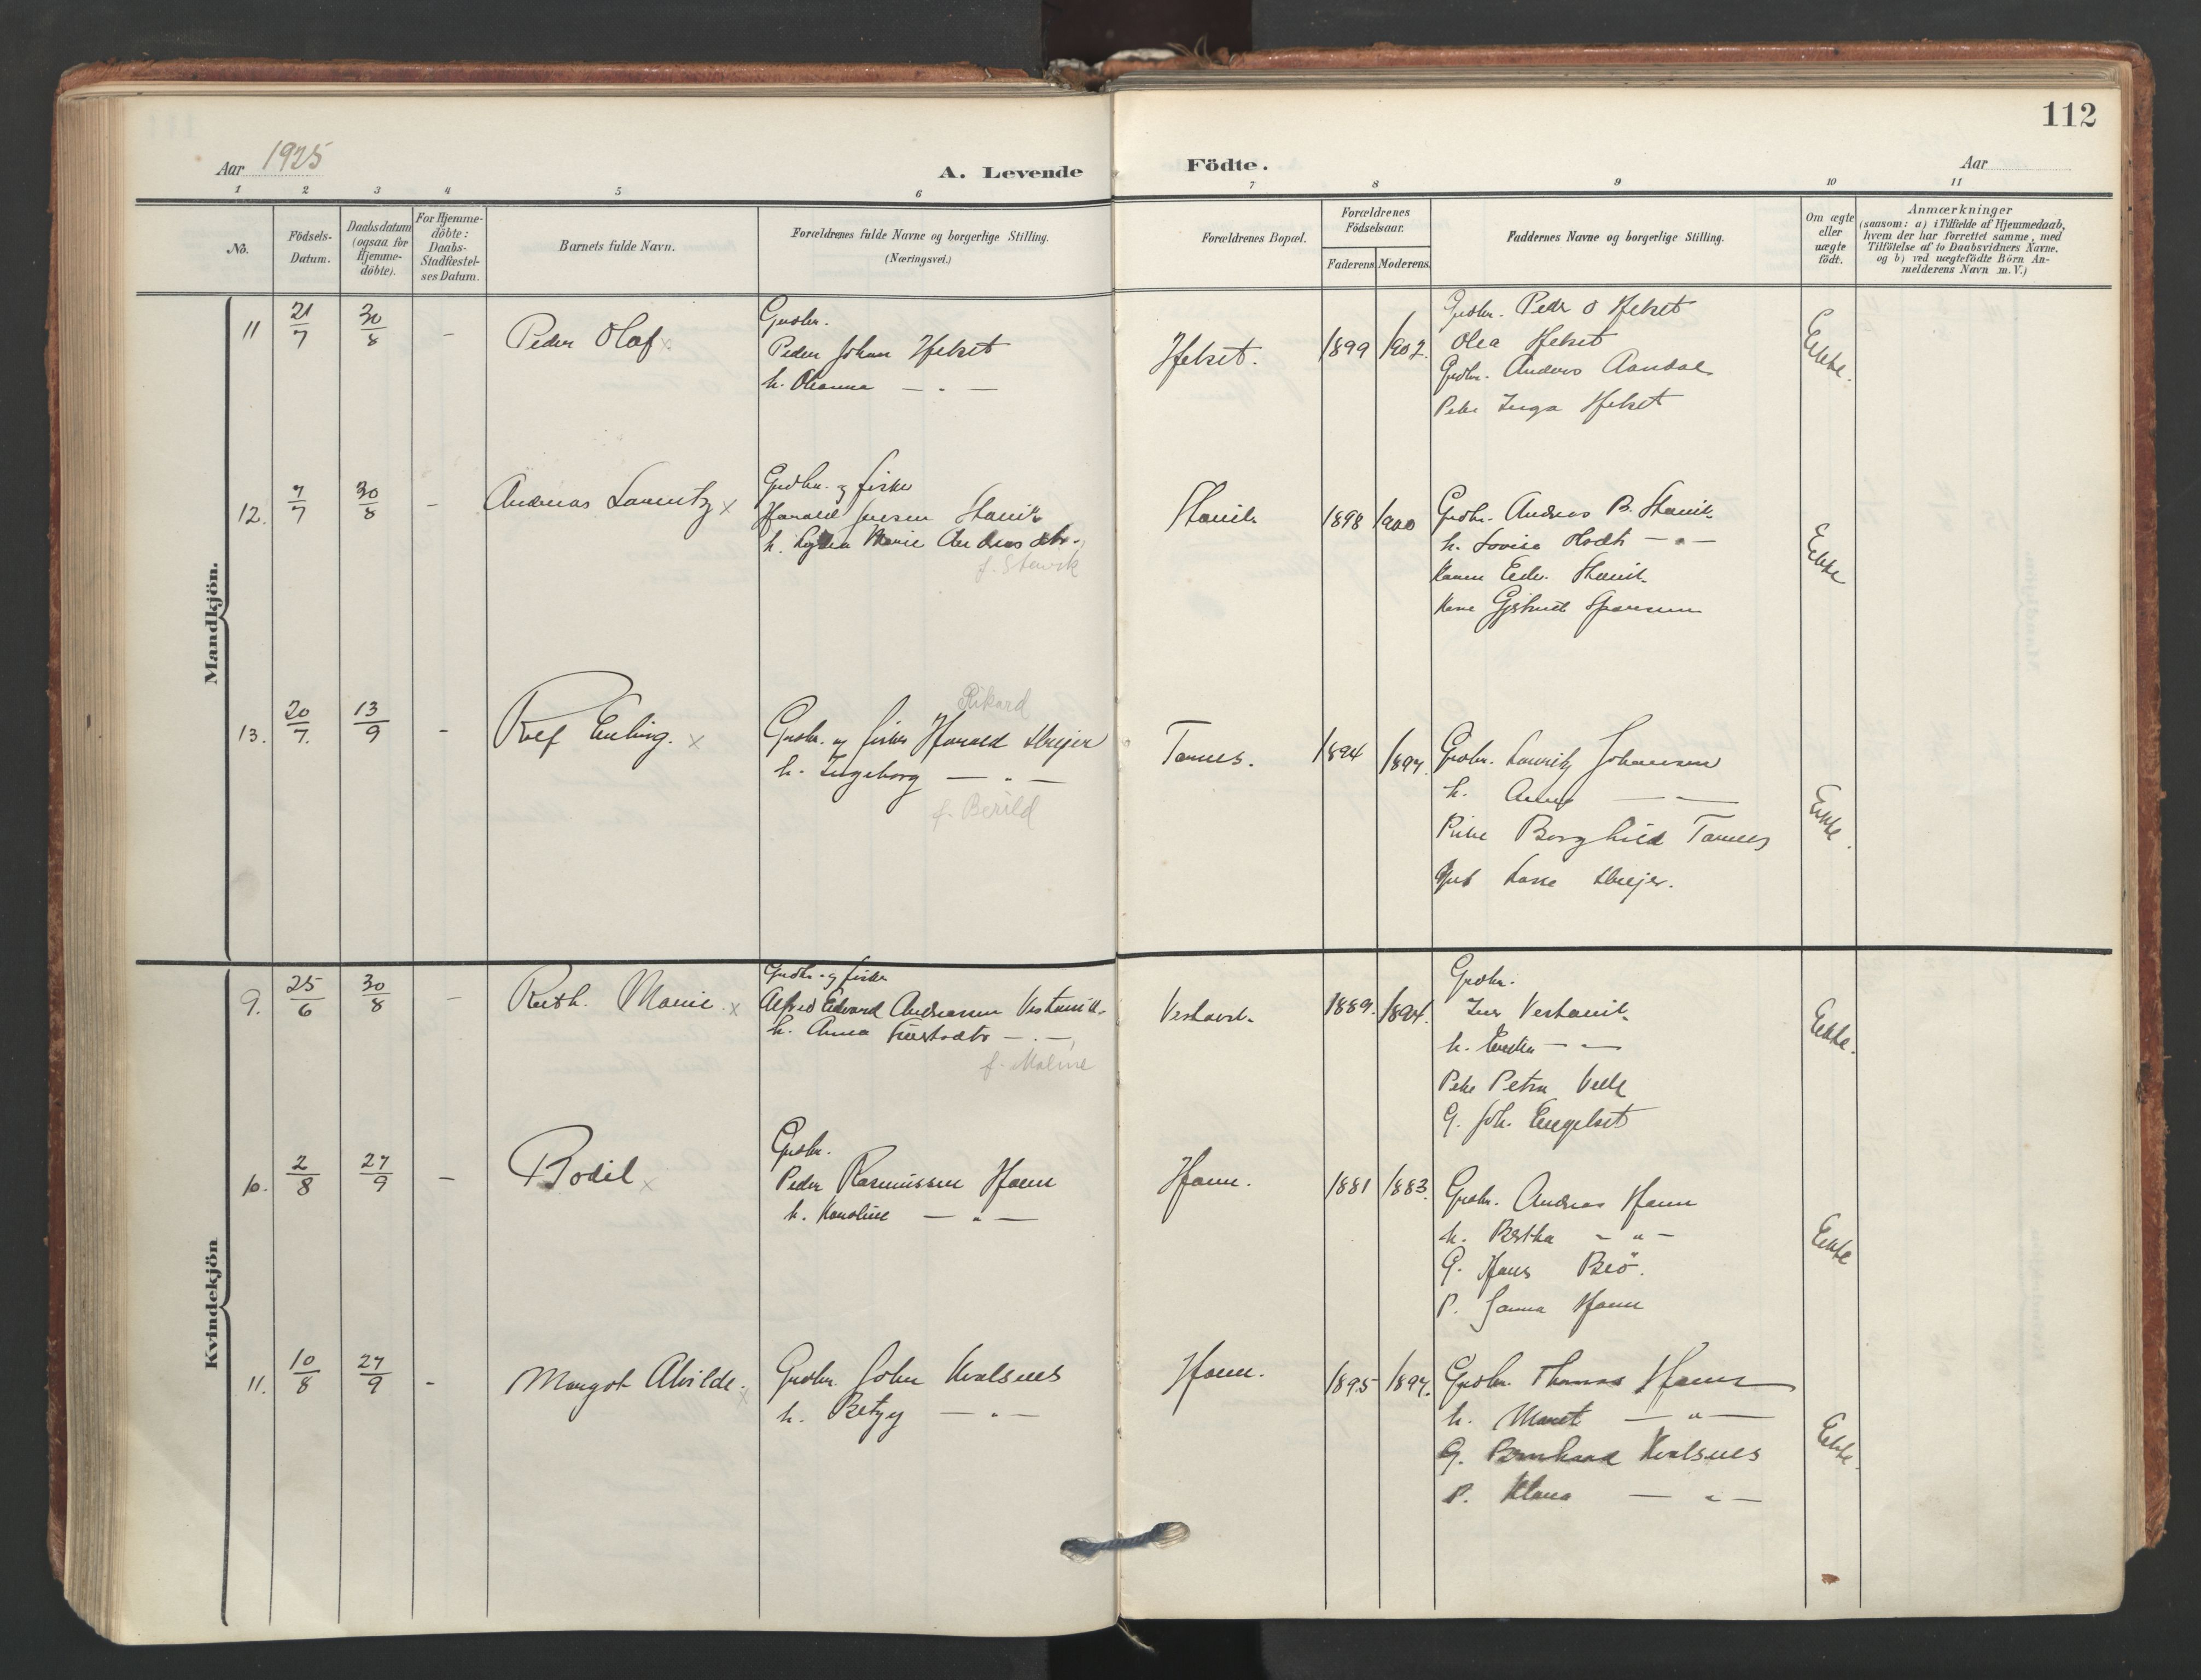 112
Aar 1925
A. Levende Födte.
Aar
1 2 3 4 5 6 7 8 9 10 11
No.
Födsels-Datum.
Daabsdatum (ogsaa for Hjemme-döbte).
For Hjemme-döbte: Daabs-Stadfæstel-ses Datum.
Barnets fulde Navn.
Forældrenes fulde Navne og borgerlige Stilling.
(Næringsvei.)
Forældrenes Bopæl.
Forældrenes Födselsaar.
Faderens Moderens.
Faddernes Navne og borgerlige Stilling.
Om ægte eller uægte födt.
Anmærkninger
(saasom: a) i Tilfælde af Hjemmedaab,
hvem der har forrettet samme, med
Tilföielse af to Daabsvidners Navne,
og b) ved uægtefödte Börn An-
melderens Navn m. V.)
Mandkjön.
11 21/7 30/8 - Peder Olaf x
Grdbr.
Peder Johan Hjelset
h. Oleanna — " —
Hjelset. 1899 1902.
Grdbr. Peder O Hjelset
Olea Hjelset
Grdbr. Anders Aandal
Pike Inga Hjelset
Ekte.
12. 7/7 30/8 - Andreas Lauritz x
Grdbr. og fisker
Harald Jensen Stavik
h. Marie Andreasdtr.
f. Stavik
Stavik 1898 1900
Grdbr. Andreas B. Stavik
h. Lovise — " —
Stavik
Gjertrud
Ekte
13. 20/7. 13/9 - Rolf Erling. x
Rikard
Grdbr. og fisker Harald
h. Ingeborg — " —
f. Berild
Tornes. 1894 1897.
Grdbr. Lauritz Johansen
h. Anna — —
Pike Borghild Tornes
Lasse
Ekte.
Kvindekjön
9. 25/6 30/8 - Ruth. Marie x
Grdbr. og fisker
Alfred Edvard Andreassen Vestavik
h. Anna — " —
f. Malme
Vestavik 1889. 1894.
Grdbr.
Iver Vestavik
h. — " —
Pike Petra
G. Joh. Engelset
Ekte.
10. 2/8 27/9 - Bodil x
Grdbr.
Peder Rasmussen Harn
h. Karoline — " —
Harn. 1881 1883.
Grdbr. Andreas Harn
h. Bertha — " —
G. Hans Beö.
P. Janna Harn
Ekte
11. 10/8 27/9 - Margot Alvilde. x
Grdbr. John Kvalsnes
h. Betzy — " —
Harn. 1895 1897.
Grdbr. Thomas Harn
h. Marit — " —
G. Bernhard Kvalsnes
P. Klara — " —
Ekte.